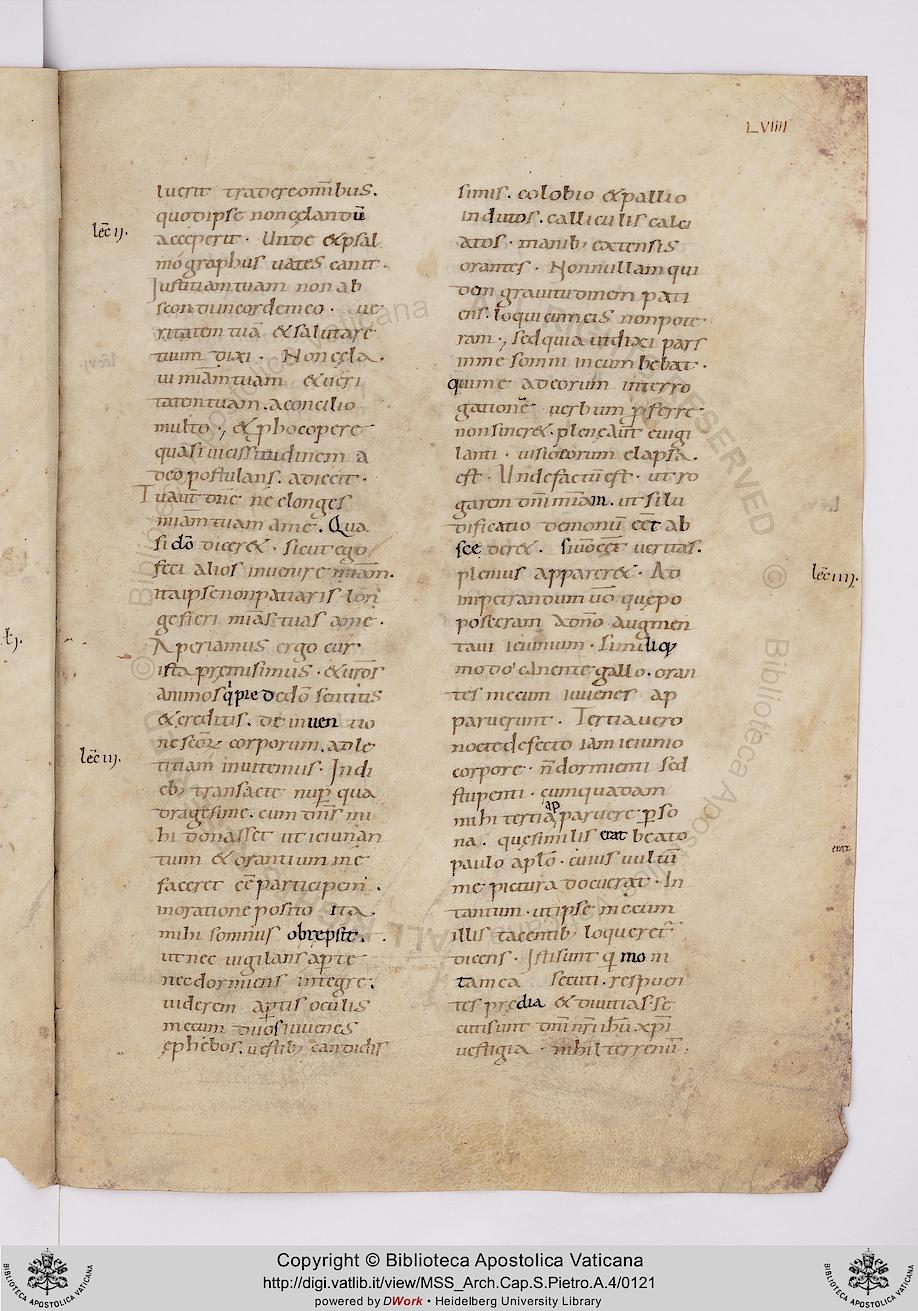 LVIIII
luerit tradere om̄ibus.
quod ipse non celandū
lec̄ ij.
acceperit. Unde & psal
mographus uates canit.
Iustitiam tuam non ab
scondi in corde meo. ue
ritatem tuā & salutare
tuum dixi. Non cela
ui miām tuam & ueri
tatem tuam. a concilio
multo., & p hoc opere
quasi uicissitudinem a
deo postulans. adiecit.
Tu aut̄ dn̄e ne elonges
miām tuam a me. Qua
si dō dicer&. sicut ego
feci alios inuenire miām.
ita ipse non patiaris lon
ge fieri miās tuas a me.
Aperiamus ergo cur
ista premisimus. & ur̄os
animos q̇ piedędō sentitis
& creditis. de inuen tio
lec̄ iij.
ne sc̄or corporum. ad lę
titiam inuitemus. In di
eb; transacte nup̄ qua
dragesime. cum dn̄s mi
hi donasset ut ieiunan
tium & orantium me
faceret eē participem.
in oratione posito ita
mihi somnus obrepsit.
ut nec uigilans ap̄te
nec dormiens integre.
uiderem aptis oculis
mecum duos iuuenes
ephebos. uestib; candidis
simis. colobio & pallio
indutos. calliculis calci
atos. manib; extensis
orantes. Non nullam qui
dem grauitudinem pati
ens. loqui cum eis non pote
ram., sed quia ut dixi pars
in me somni incumbebat.
qui me ad eorum interro
gationē uerbum pferre
non siner&. plenę aūt euigi
lanti. uisio eorum elapsa
est. Unde factū est. ut ro
garem dn̄m miām. ut si lu
dificatio demonū eēt ab
scederet. si uō eēt ueritas.
lec̄ iiij.
plenius apparer&. Ad
impetrandum uō quę po
posceram a dn̄o augmen
taui ieiunium. Simili q;
modo canente gallo. oran
tes mecum iuuenes ap
paruerunt. Tertia uero
nocte defecto iam ieiunio
corpore. n̄ dormienti sed
stupenti. cum quadam
mihi tertia ap paruere p̱so
na. quę similis erat beato
erat
paulo aplō. cuius uultū
me pictura docuerat. In
tantum. ut ipse mecum
illis tacentib; loqueret̄
dicens. Isti sunt q̇ mo ni
ta mea secuti. respuen
tes predia & diuitias. se
cuti sunt dn̄i nr̄i ihū xp̄i
uestigia. nihil terrenū.
Copyright © Biblioteca Apostolica Vaticana
http://digi.vatlib.it/view/MSS_Arch.Cap.S.Pietro.A.4/0121
powered by DWork • Heidelberg University Library